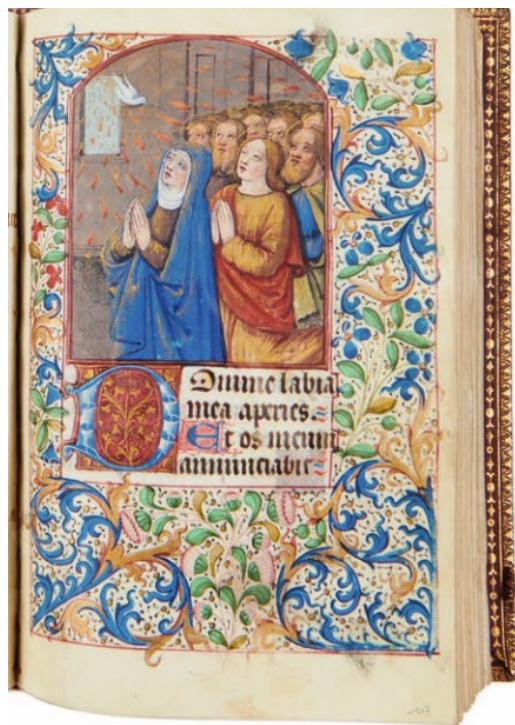 Domine labia
mea aperies
Et os meum
annunciabit